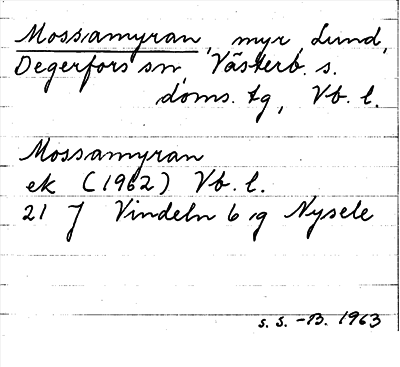 Mossamyran, myr, Lund,
Degerfors sn, Västerb. s.
doms. tg, Vb. l.
Mossamyran
ek (1962) Vb. l.
21 J Vindeln 6 g Nysele
s. s. -B. 1963